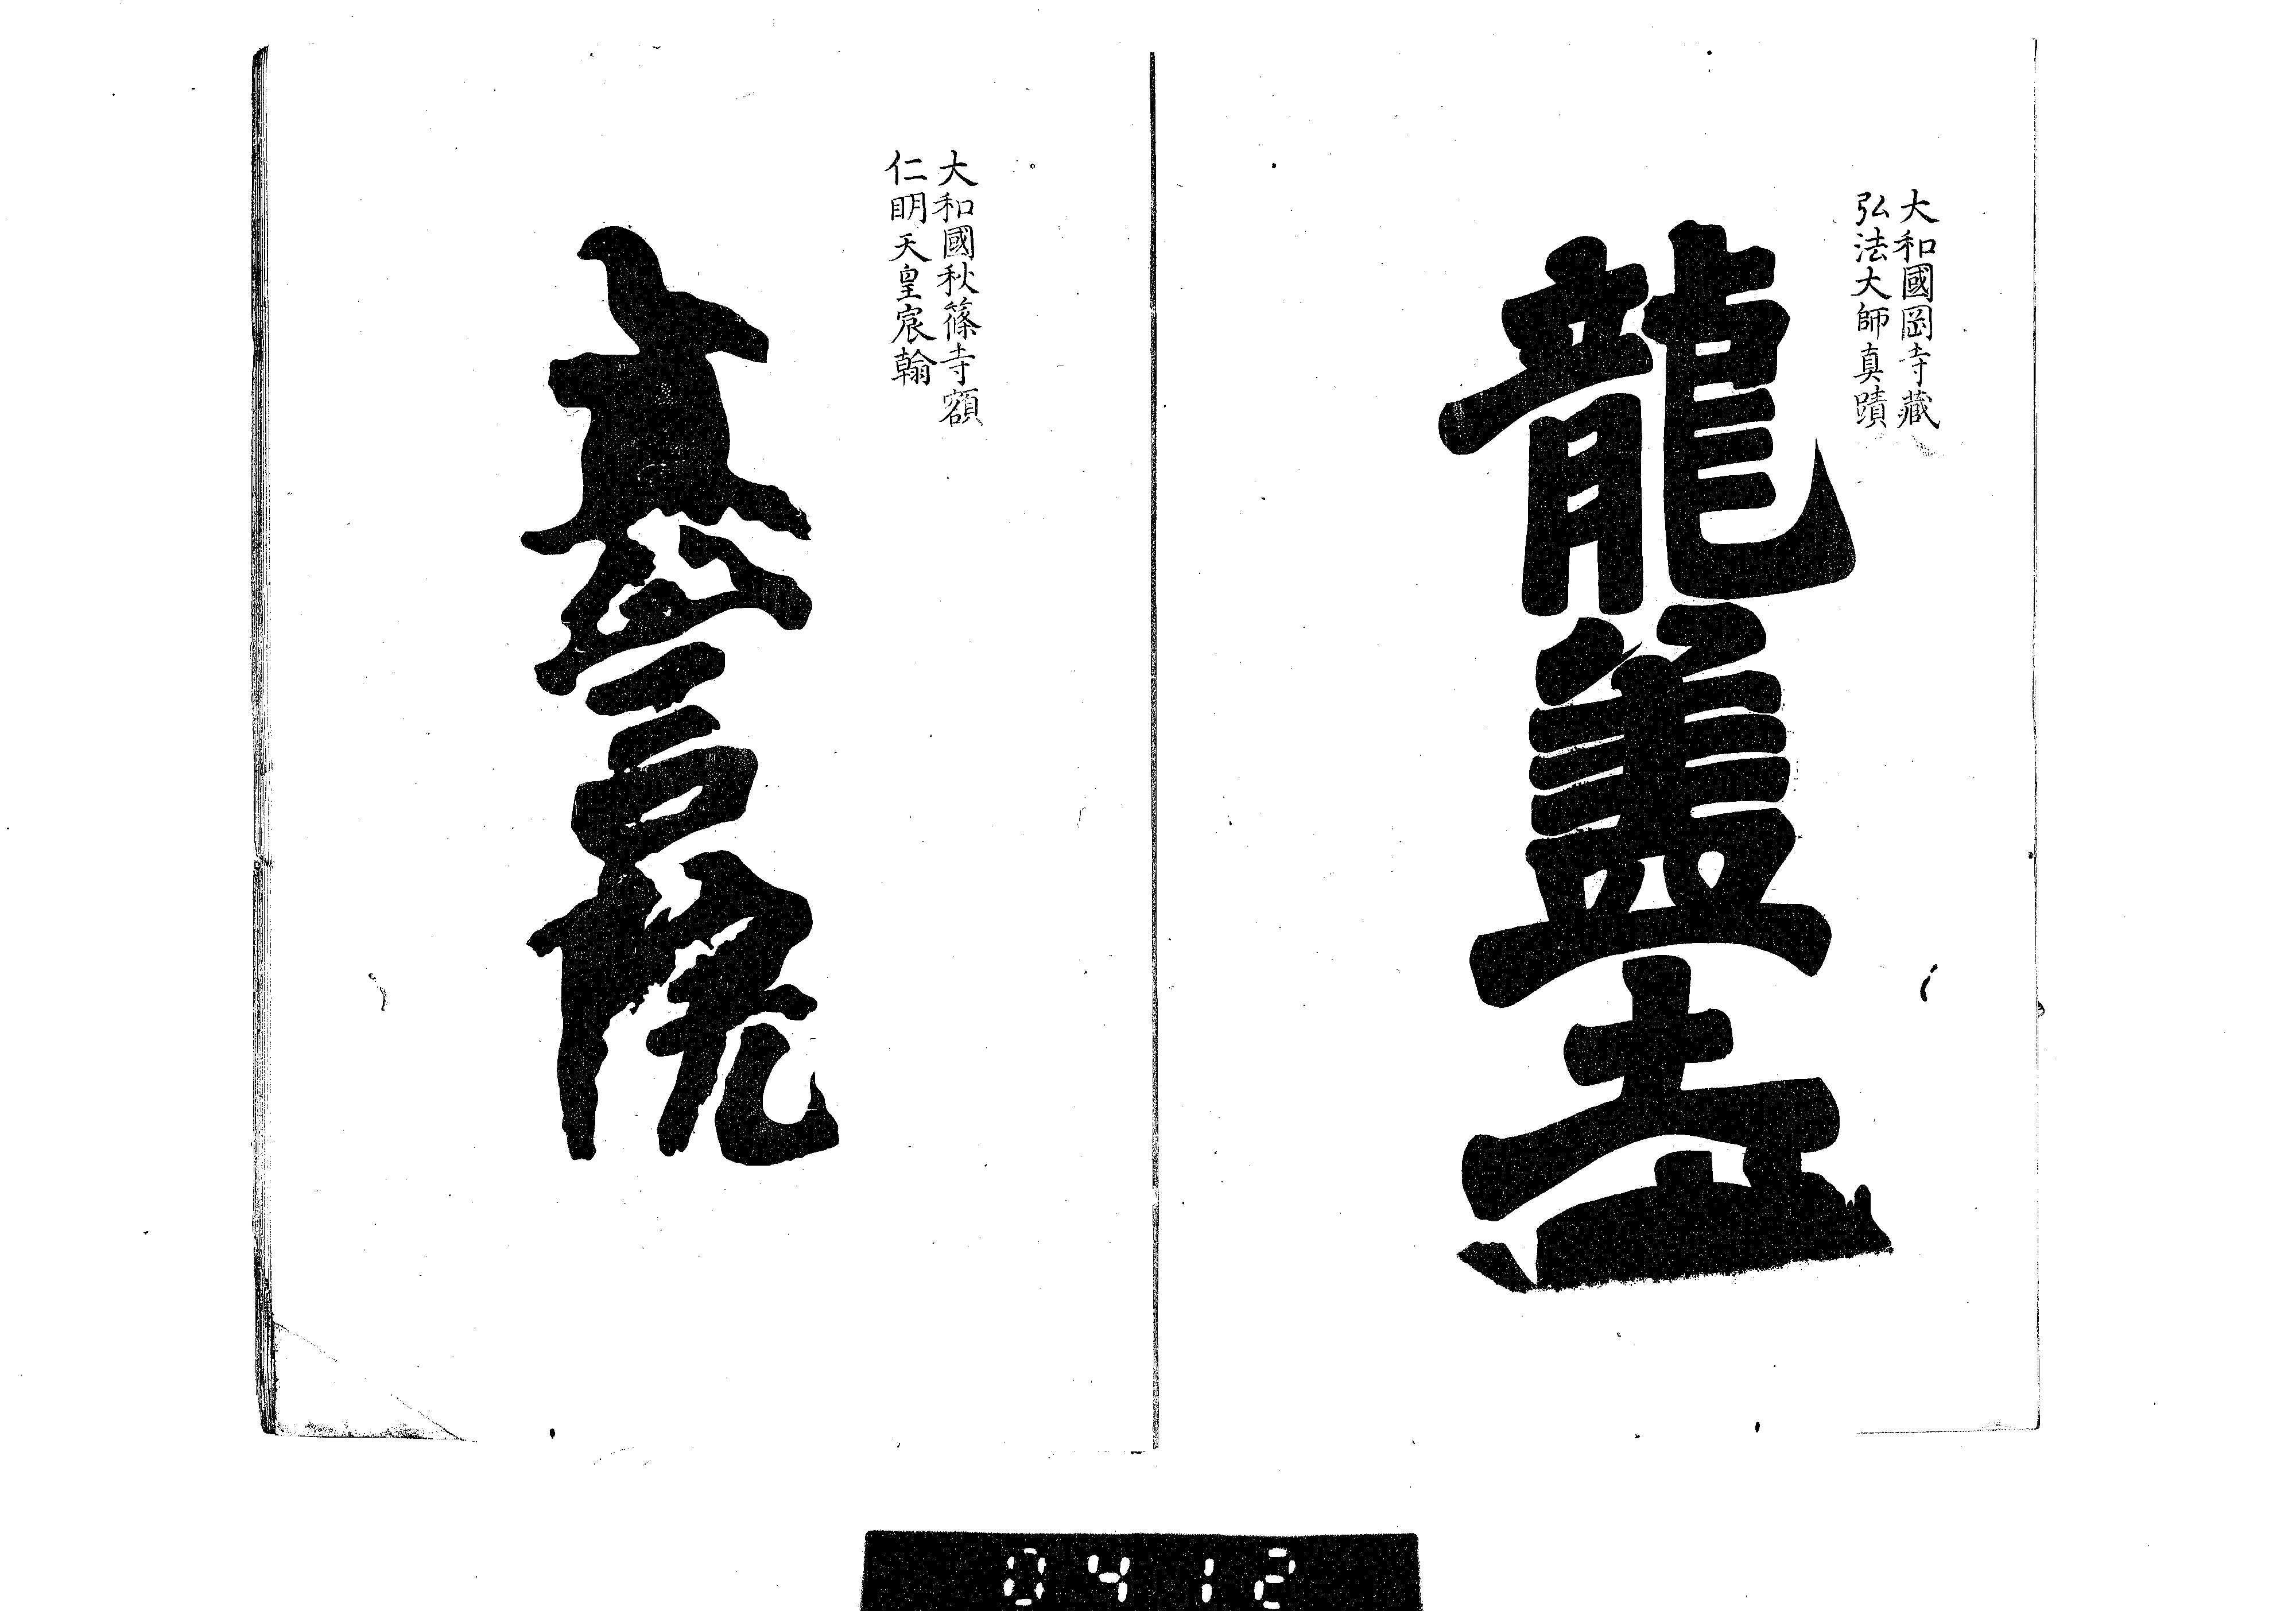 大和國岡寺藏
弘法大師真蹟
龍蓋寺
大和國秋篠寺額
仁明天皇宸翰
真言院
0412